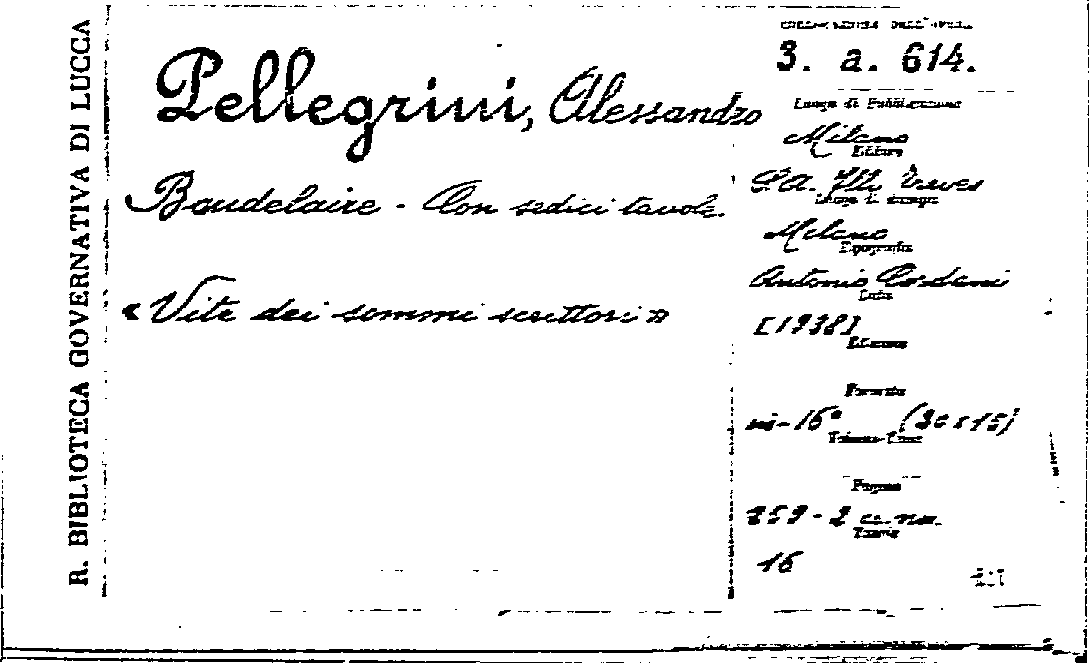 R. BIBLIOTECA GOVERNATIVA DI LUCCA
Pellegrini, Alessandro
Baudelaire - Con sedici tavole.
«Vite dei sommi scrittori»
COLLOCAZIONE DELL'OPERA
3. a. 614.
Luogo di Pubblicazione
Milano
Editore
S.A. Flli Treves
Luogo di stampa
Milano
Tipografia
Antonio Cordani
Data
[1938]
Edizione
Formato
in-16°
Volume-Tomo
Pagine
259-2 c. nn.
Tavole
16